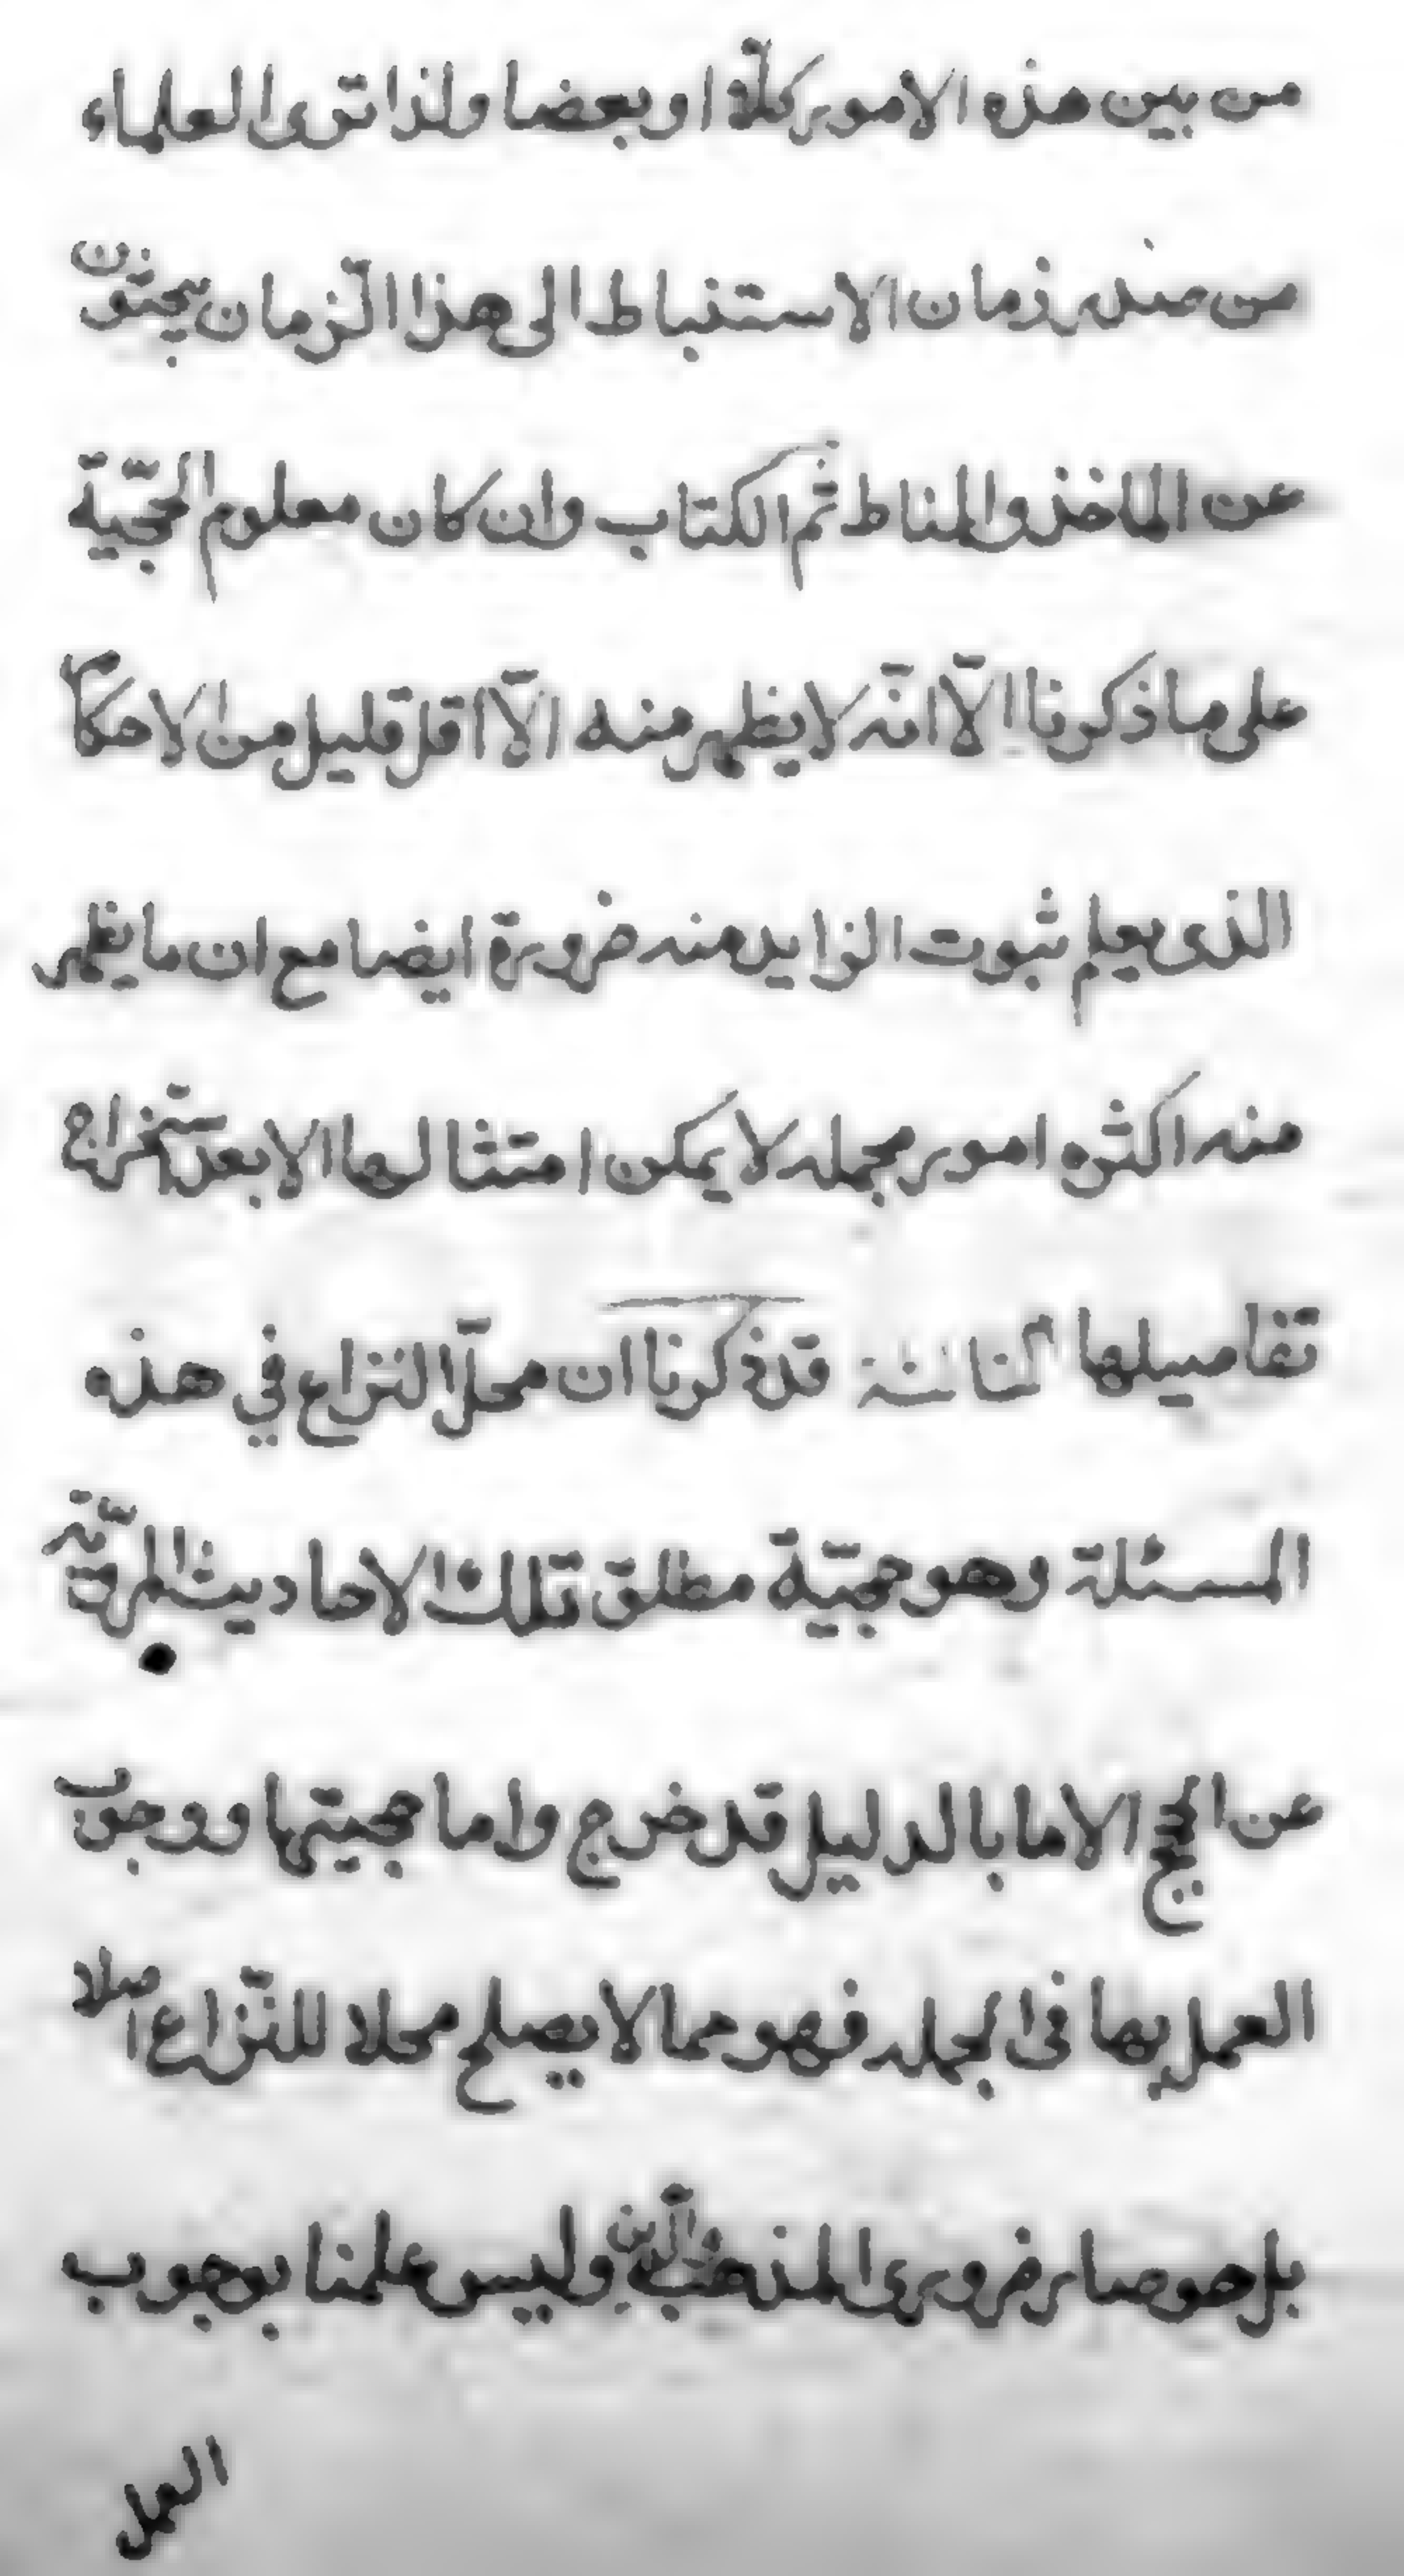 من بين هذه الامور كلّا او بعضا ولذا ترى العلماء
من صدر زمان الاستنباط الى هذا الزّمان يبحثون
عن الماخذ والمناط ثم الكتاب وان كان معلوم الحجّيّة
على ما ذكرنا الّا انّه لا يظهر منه الّا اقل قليل من الاحكام
الذى يعلم ثبوت الزايد منه ضرورة ايضا مع ان ما يظهر
منه اكثره امور مجمله لا يمكن امتثالها الا بعد استخراج
تفاصيلها الثالثة قد ذكرنا ان محلّ النزاع في هذه
المسئلة وهو حجيّة مطلق تلك الاحاديث المرويّة
عن الحجج الا ما بالدليل قد خرج واما حجيتها ووجوب
العمل بها فى الجمله فهو مما لا يصلح محلا للنّزاع اصلا
بل هو صار ضرورى المذهب بل الدين وليس علمنا بوجوب
العمل